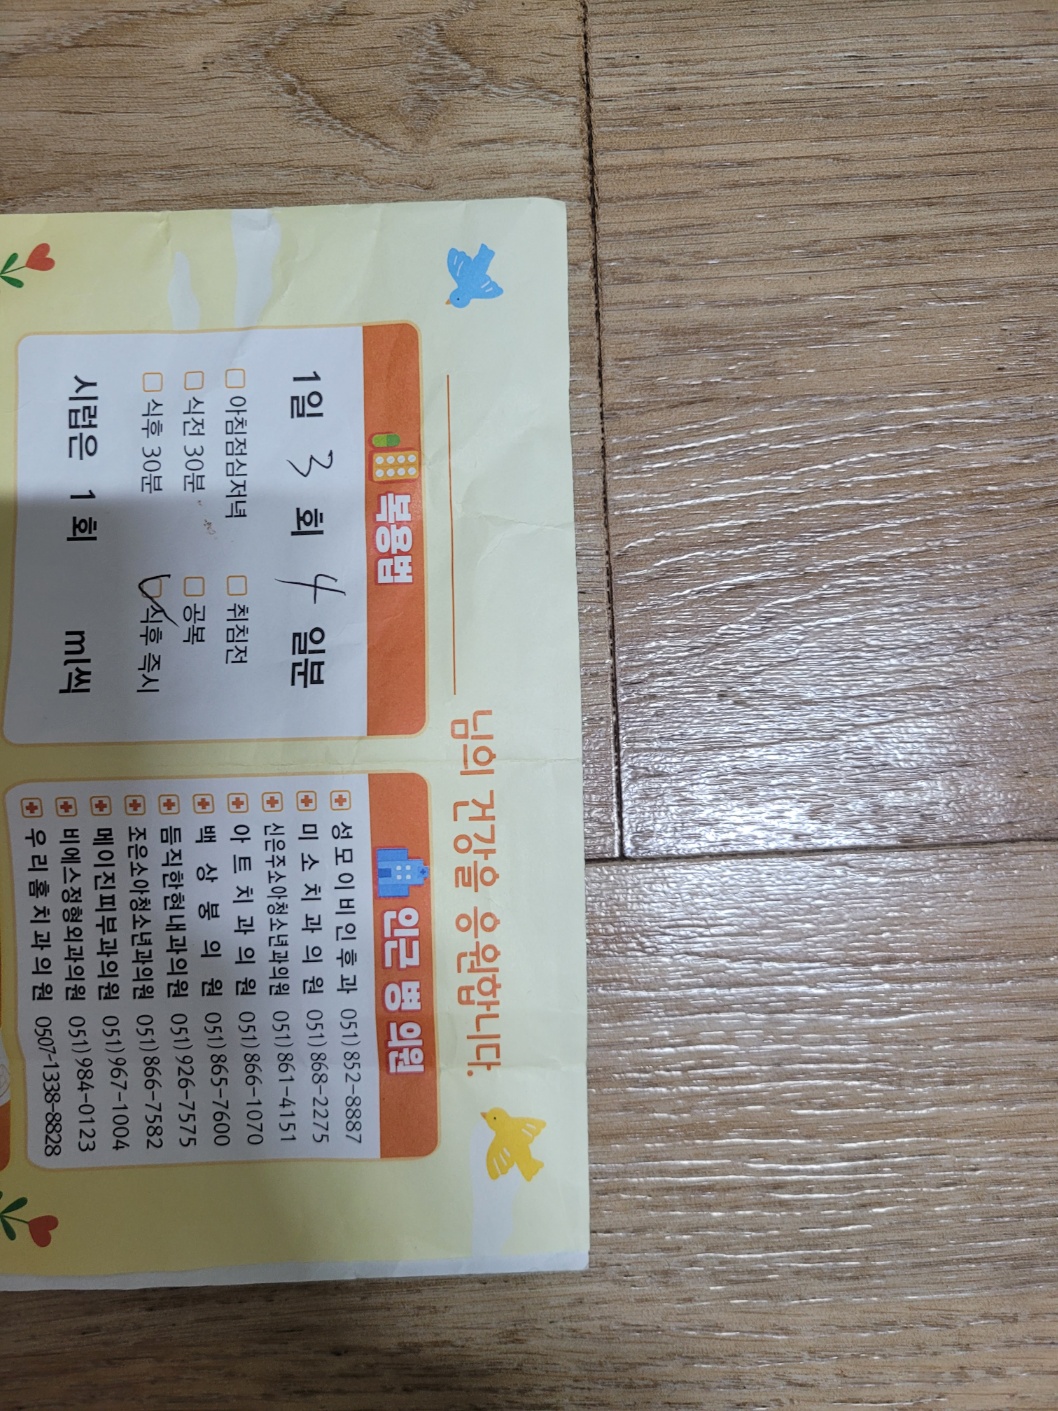 님의 건강을 응원합니다.
복용법
1일 3 회 4 일분
아침점심저녁 취침전
식전 30분 공복
식후 30분 식후 즉시
시럽은 1 회 ml씩
인근 병 의원
성모이비인후과 051) 852-8887
미소치과의원 051) 868-2275
신은주소아청소년과의원 051) 861-4151
아트치과의원 051) 866-1070
백상봉의원 051) 865-7600
듬직한현내과의원 051) 926-7575
조은소아청소년과의원 051) 866-7582
메이진피부과의원 051) 967-1004
비에스정형외과의원 051) 984-0123
우리홈치과의원 0507-1338-8828